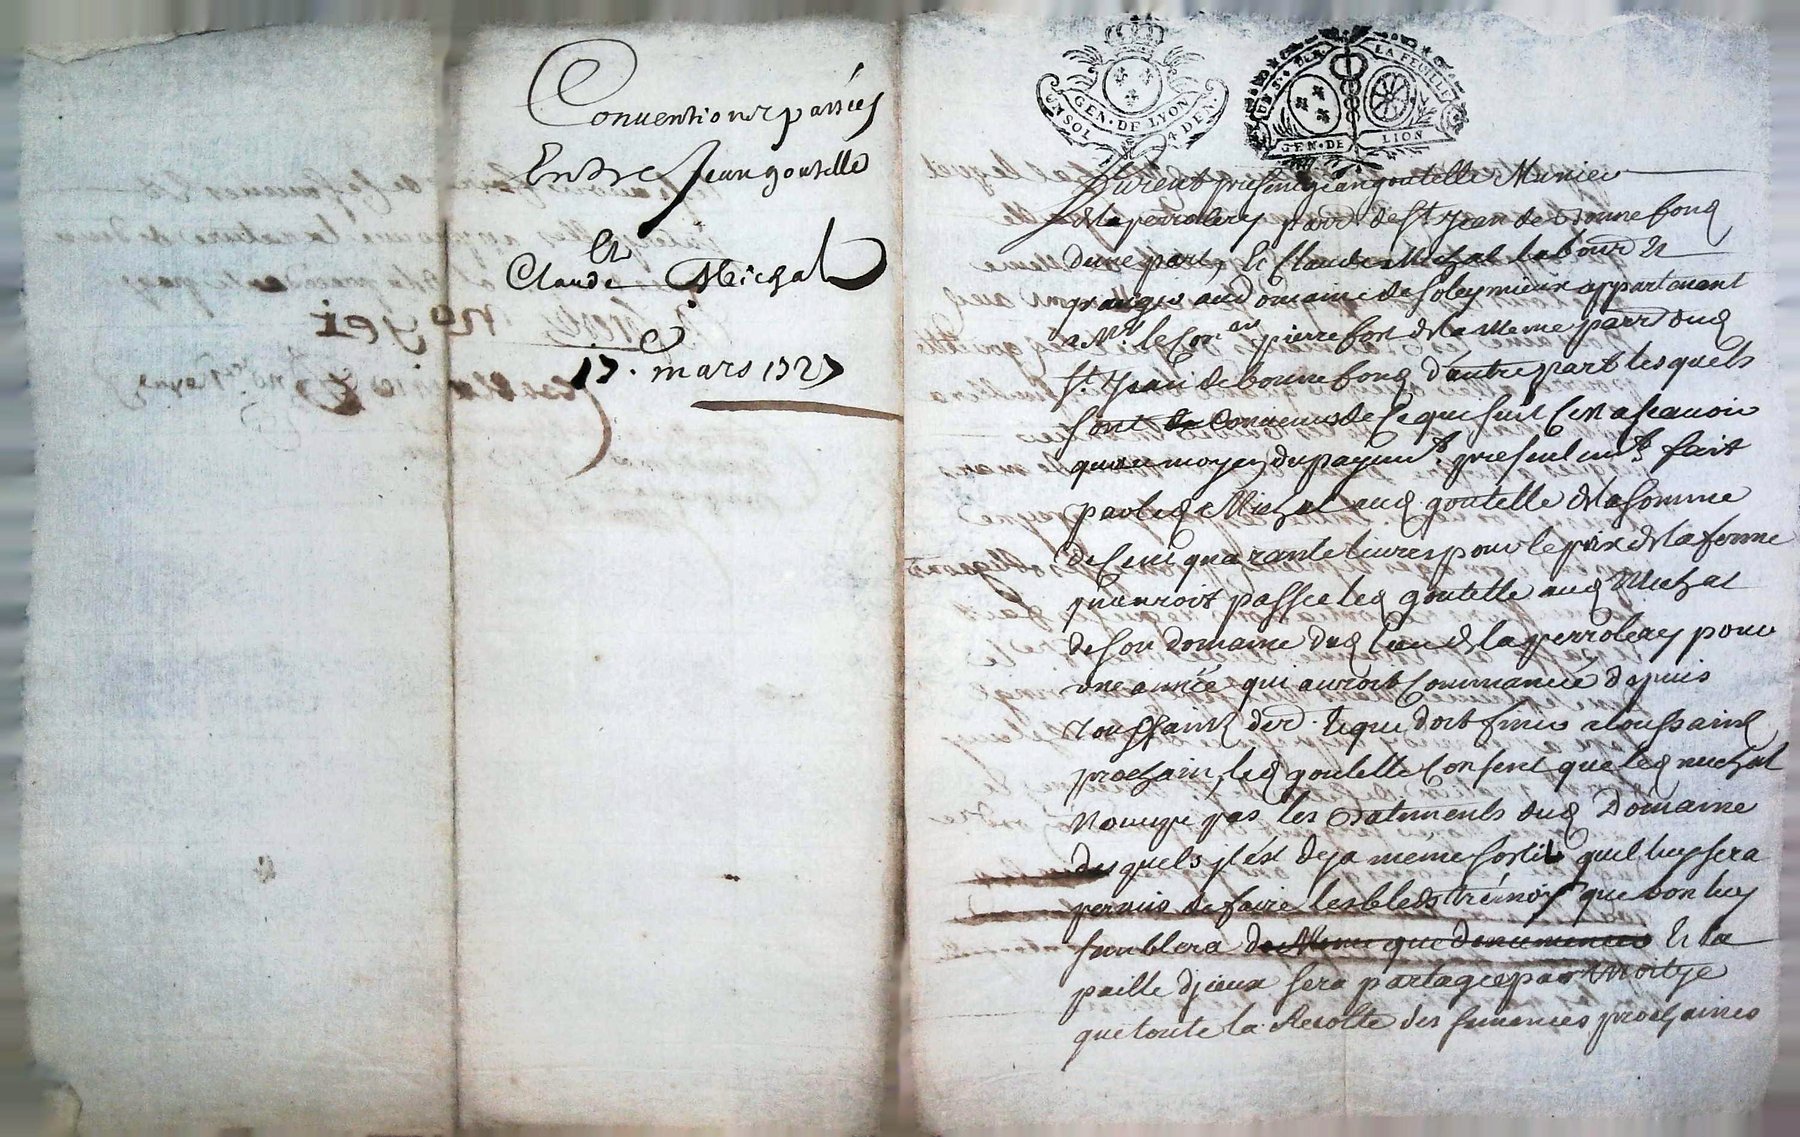 Conventions passées
Entre Jean goutelle
Et
Claude Michal
17. mars 1727
UN SOL GEN. DE LYON 4 DEN.
LA FEUILLE
GEN. DE LION
Furent presens jean goutelle Munier
de la perrolery parr. de St Jean de bonnefond
dune part, Et Claude Michal labour. Et
granger au Domaine de Soleymieux appartenant
a Mr. le Con.er pierrefort de la meme parr. dud.
St. Jean de bonnefond d'autre part lesquels
sont convenus de ce que suit Cest a scavoir
quau moyen du payem.t presentem.t fait
par led. Michal aud. goutelle de la somme
de Cent quarante livres pour le prix de la ferme
quauroit passée led. goutelle aud. Michal
de son domaine dud. lieu de la perrolery pour
une année qui auroit Commancée depuis
toussaint der. Et que doit finir a toussaint
prochain, led. goutelle Consent que led. michal
N'occupe pas les batiments dud. Domaine
desquels il est deja meme sortit quil luy sera
permis de faire les bleds trémois que bon luy
semblera Et la
paille d'jceux sera partagée par moitye
que toute la Recolte des semences prochaines